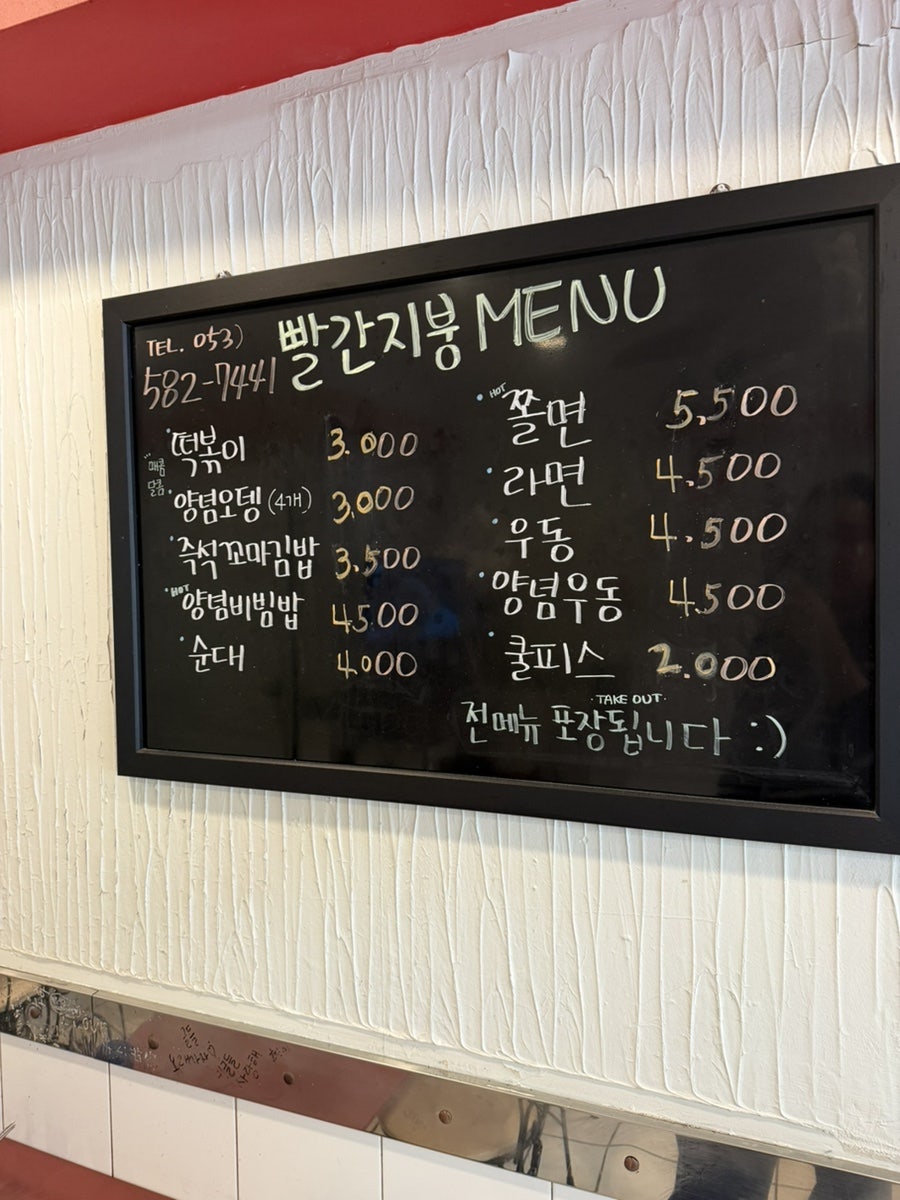 빨간지붕 MENU
TEL. 053)
582-7441
떡볶이 3.000
매콤
달콤
양념오뎅 (4개) 3,000
즉석꼬마김밥 3.500
HOT 양념비빔밥 4500
순대 4.000
HOT 쫄면 5,500
라면 4.500
우동 4.500
양념우동 4.500
쿨피스 2.000
TAKE OUT
전메뉴 포장됩니다 :)